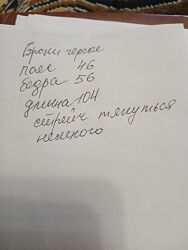 Брюки черные
пояс 46
бедра 56
длинна 104
стрейч тянуться
немного